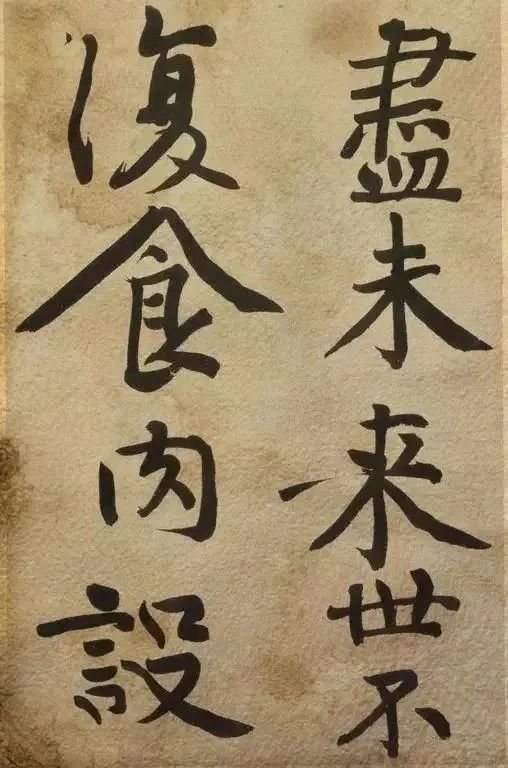 盡未来世不
復食肉設